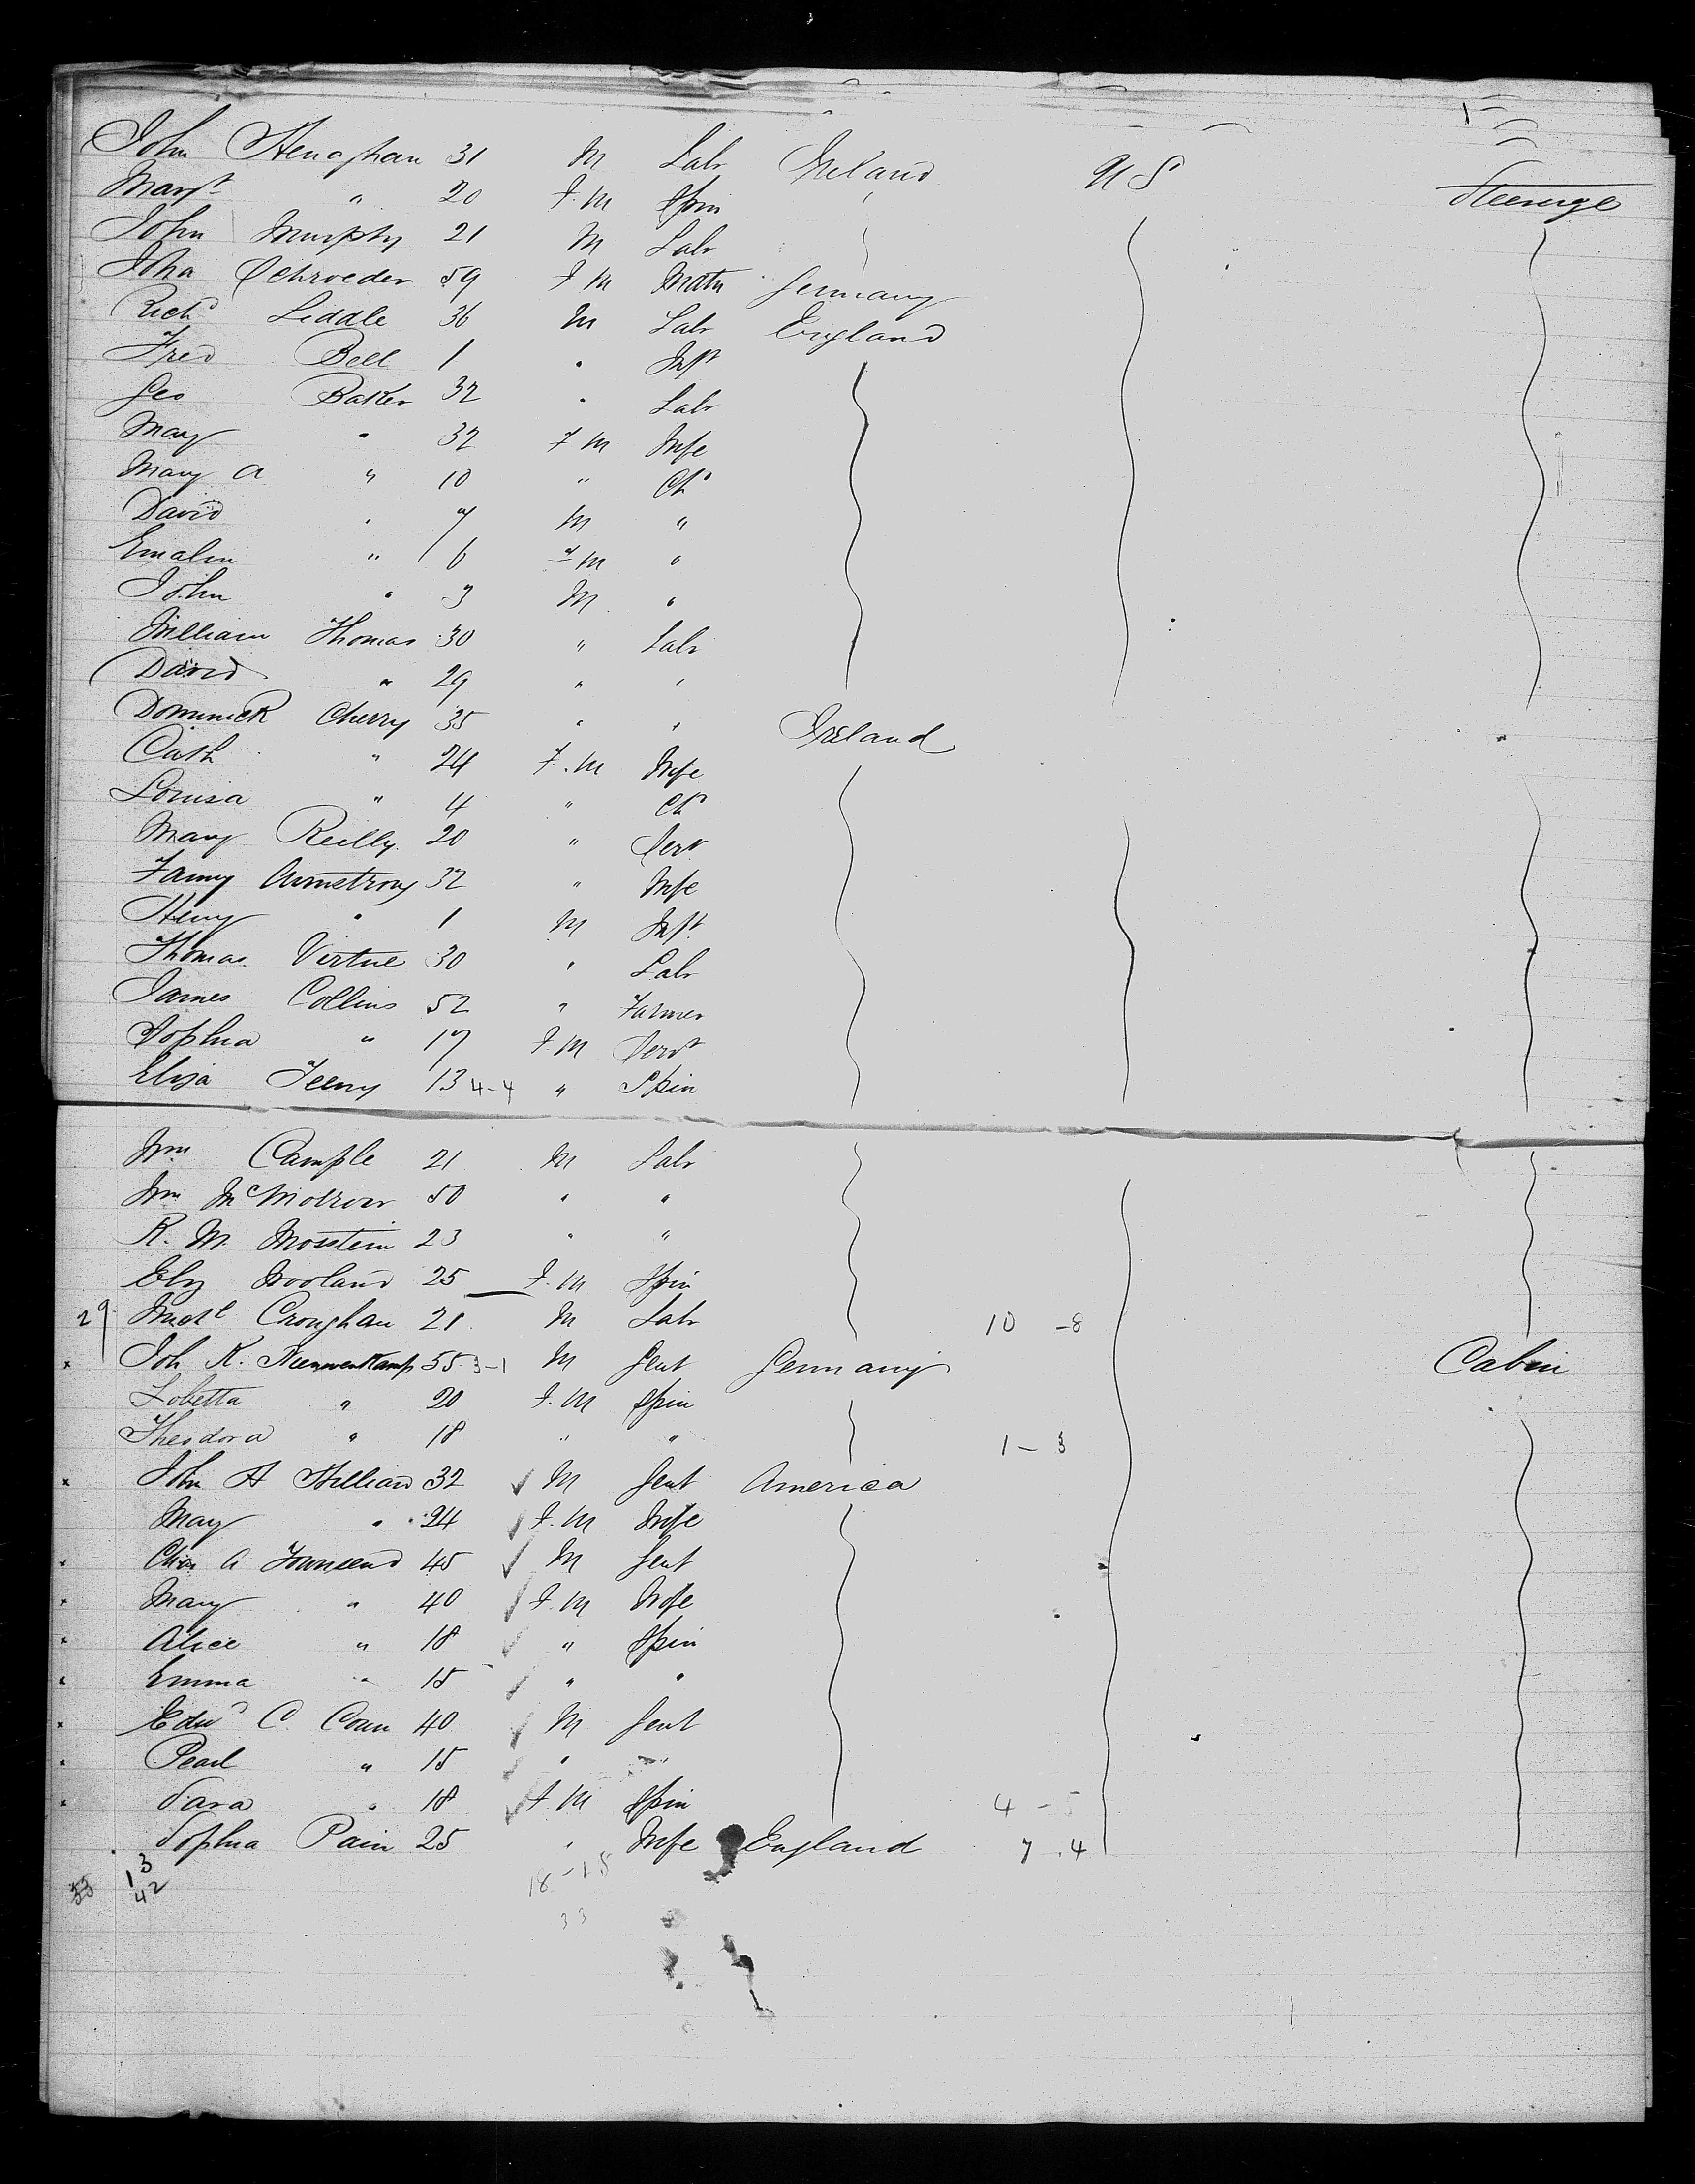 John Henaghan 31 M Labr Ireland U S Steerage
Margt " 20 F.M Spin "
John Murphy 21 M Labr
Joha Schroeder 59 F M Matn Germany
Richd Liddle 36 M Labr England
Fred Bell 1 " Inft
Geo Baker 32 " Labr
Mary " 32 F M Wife
Mary A " 10 " Chd
David " 7 M "
Emalin " 6 F M "
John " 3 M "
William Thomas 30 " Labr
David " 29 " "
Dominick Cherry 35 " " Ireland
Cath " 24 F.M Wife
Louisa " 4 " Chd
Mary Reilly 20 " Servt
Fanny Armstrong 32 " Wife
Henry " 1 M Inft
Thomas Virtue 30 " Labr
James Collins 52 " Farmer
Sophia " 17 F.M Servt
Eliza Feeny 13 4-4 " Spin
Wm Cample 21 M Labr
Wm 50 " "
R. M. 23 " "
Eliz 25 F.M Spin
29 Michl Croughan 21 M Labr 10 -8
x Joh K. 55 3-1 M Gent Germany Cabin
" 20 F.M Spin
Theodora " 18 " " 1-3
x John A 32 ✓ M Gent America
Mary " 24 ✓ F.M Wife
x Chas A Townsend 45 ✓ M Gent
x Mary " 40 ✓ F.M Wife
x Alice " 18 ✓ " Spin
x Emma " 15 ✓ " "
x Edwd C. Conn 40 ✓ M Gent
x Pearl " 15 ✓ " "
x Sara " 18 ✓ F.M Spin 4-5
Sophia Pain 25 " Wife England 7.4
13 18-15
42
33